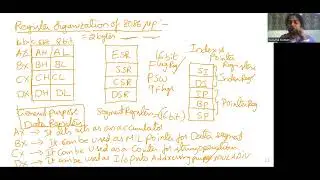 Register Organization of 8086 μp :-
8bit 8bit = 2 bytes
AX AH AL
BX BH BL
CX CH CL
DX DH DL
General purpose
Data Registers
ESR
SSR
CSR
DSR
Segment Registers (16 bit)
16 bit
Flag Reg
PSW
9 flags
Index &
Pointer
Registers
SI
DI
IP
BP
SP
Index Reg
Pointer Reg
AX → It acts as an accumulator
BX → It can be used as M/L pointer for Data segment
CX → It can be used as a Counter for string operation
DX → It can be used as I/O Ports Addressing purpose MUL & DIV